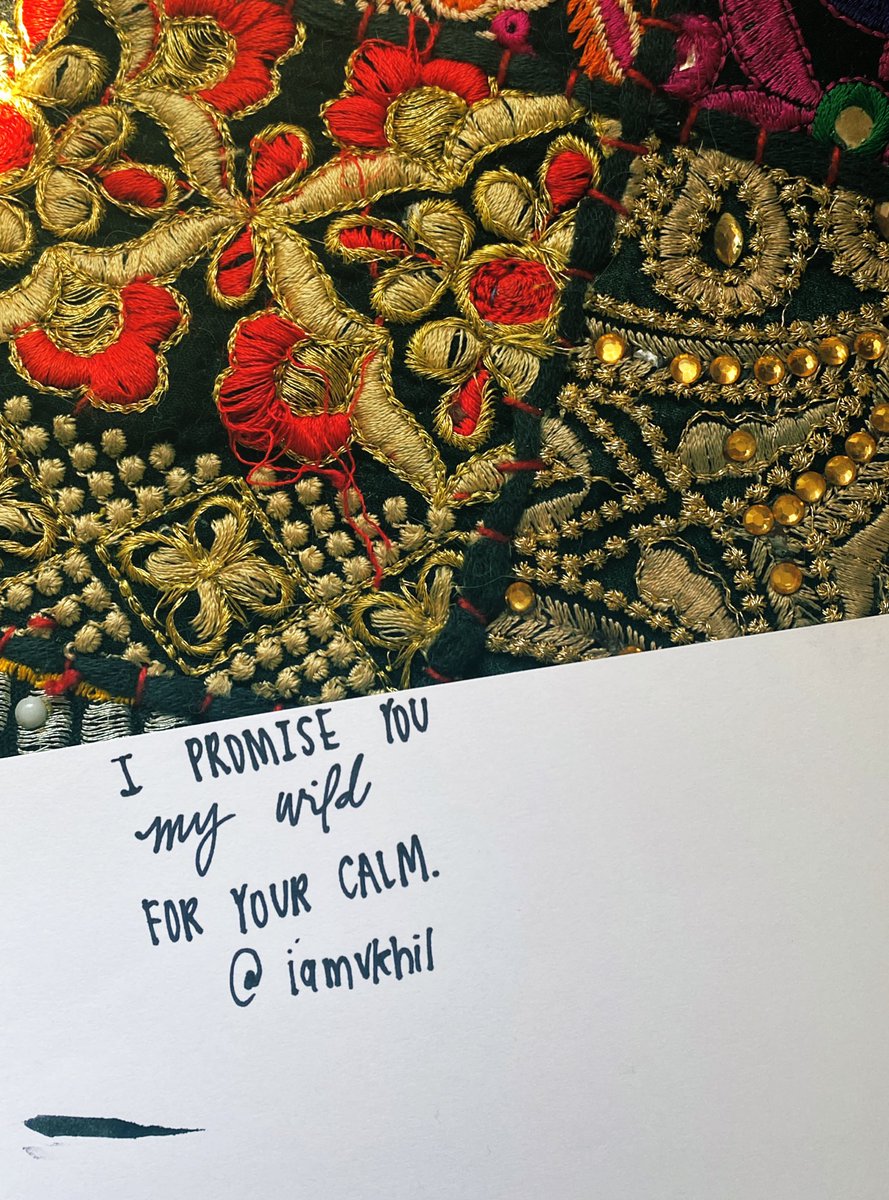 I PROMISE YOU
my wild
FOR YOUR CALM.
@iamvkhil